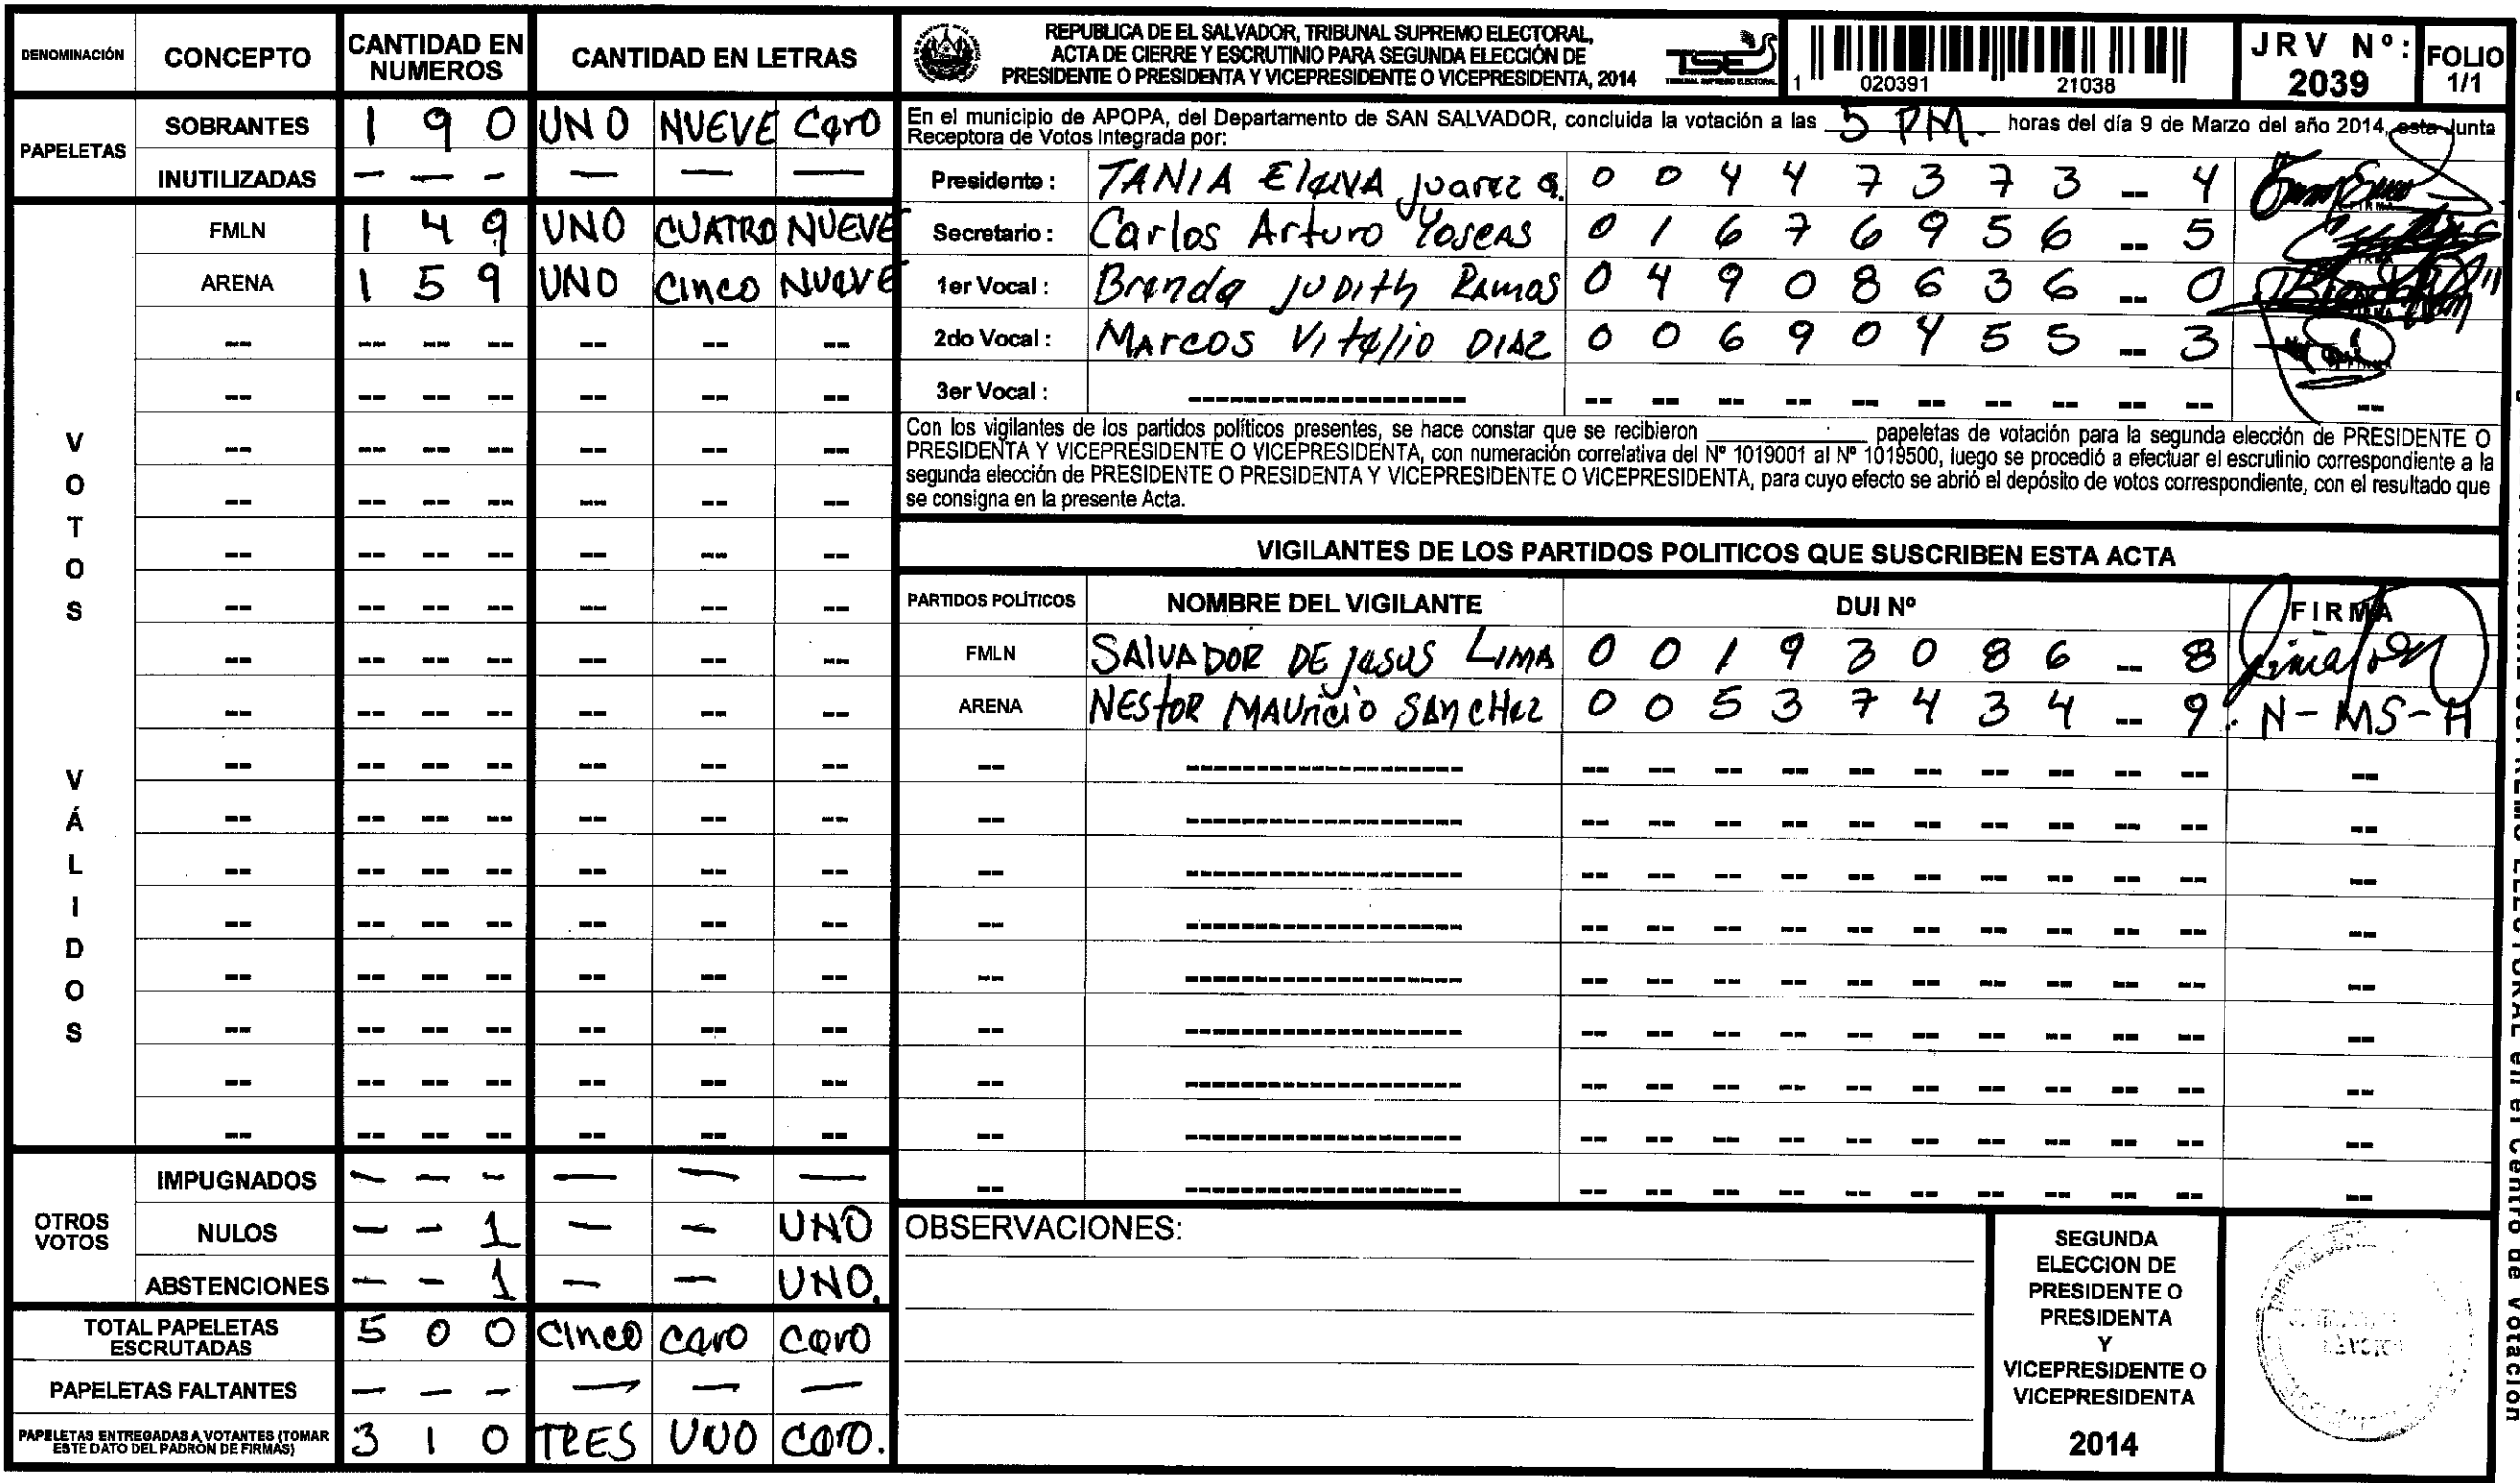 DENOMINACIÓN CONCEPTO CANTIDAD EN NUMEROS CANTIDAD EN LETRAS
PAPELETAS
SOBRANTES 1 9 0 UNO NUEVE Cero
INUTILIZADAS — — — — — —
VOTOS VÁLIDOS
FMLN 1 4 9 UNO CUATRO NUEVE
ARENA 1 5 9 UNO CINCO NUEVE
OTROS VOTOS
IMPUGNADOS — — — — — —
NULOS — — 1 — — UNO
ABSTENCIONES — — 1 — — UNO.
TOTAL PAPELETAS ESCRUTADAS 5 0 0 CINCO Cero Cero
PAPELETAS FALTANTES — — — — — —
PAPELETAS ENTREGADAS A VOTANTES (TOMAR ESTE DATO DEL PADRÓN DE FIRMAS) 3 1 0 TRES UNO Cero.
REPUBLICA DE EL SALVADOR, TRIBUNAL SUPREMO ELECTORAL,
ACTA DE CIERRE Y ESCRUTINIO PARA SEGUNDA ELECCIÓN DE
PRESIDENTE O PRESIDENTA Y VICEPRESIDENTE O VICEPRESIDENTA, 2014
TSE
TRIBUNAL SUPREMO ELECTORAL
1 020391 21038
JRV Nº: 2039
FOLIO 1/1
En el municipio de APOPA, del Departamento de SAN SALVADOR, concluida la votación a las 5 PM horas del día 9 de Marzo del año 2014, esta Junta
Receptora de Votos integrada por:
Presidente : TANIA Juarez 0 0 4 4 7 3 7 3 -- 4
Secretario : Carlos Arturo 0 1 6 7 6 9 5 6 -- 5
1er Vocal : Brenda JUDITH RAMOS 0 4 9 0 8 6 3 6 -- 0
2do Vocal : MARCOS Vitelio DIAZ 0 0 6 9 0 4 5 5 -- 3
3er Vocal :
Con los vigilantes de los partidos políticos presentes, se hace constar que se recibieron ____ papeletas de votación para la segunda elección de PRESIDENTE O
PRESIDENTA Y VICEPRESIDENTE O VICEPRESIDENTA, con numeración correlativa del Nº 1019001 al Nº 1019500, luego se procedió a efectuar el escrutinio correspondiente a la
segunda elección de PRESIDENTE O PRESIDENTA Y VICEPRESIDENTE O VICEPRESIDENTA, para cuyo efecto se abrió el depósito de votos correspondiente, con el resultado que
se consigna en la presente Acta.
VIGILANTES DE LOS PARTIDOS POLITICOS QUE SUSCRIBEN ESTA ACTA
PARTIDOS POLÍTICOS NOMBRE DEL VIGILANTE DUI Nº FIRMA
FMLN SALVADOR DE JESUS LIMA 0 0 1 9 3 0 8 6 -- 8
ARENA NESTOR MAURICIO SANCHEZ 0 0 5 3 7 4 3 4 -- 9 N-MS-H
OBSERVACIONES:
SEGUNDA
ELECCION DE
PRESIDENTE O
PRESIDENTA
Y
VICEPRESIDENTE O
VICEPRESIDENTA
2014
en el Centro de Votación